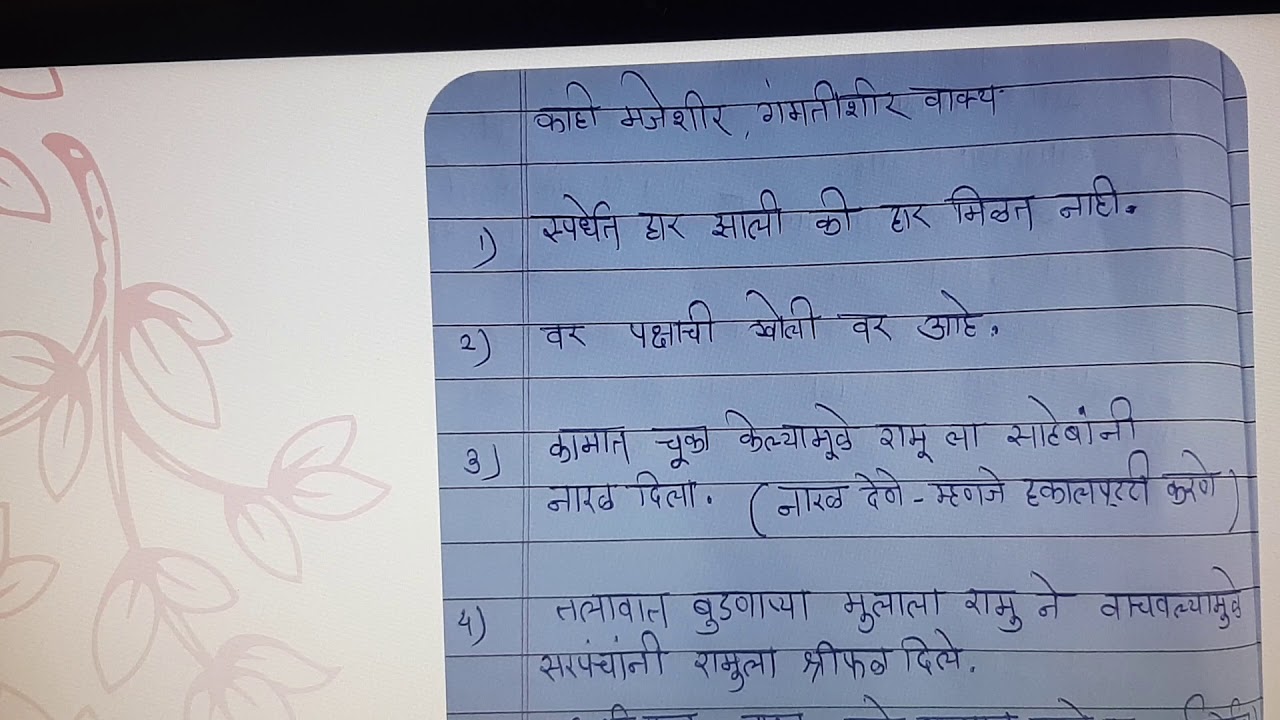 काही मजेशीर, गंमतीशीर वाक्य
1) स्पर्धेत हार झाली की हार मिळत नाही.
2) वर पक्षाची खोली वर आहे.
3) कामात चूका केल्यामूळे रामू ला साहेबांनी
नारळ दिला. (नारळ देणे - म्हणजे हकालपट्टी करणे)
4) तलावात बुडणाऱ्या मुलाला रामु ने वाचवल्यामुळे
सरपंचांनी रामुला श्रीफळ दिले.